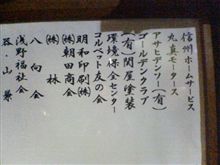 信州ホームサービス
丸真モータース
アサヒデンソー(有)
ゴールデンクラブ
(有)関屋塗装
環境保全センター
コルベット友の会
明和印刷(株)
(株)朝田商会
(株)林
八向会
浅野福祉会
谷・山兼